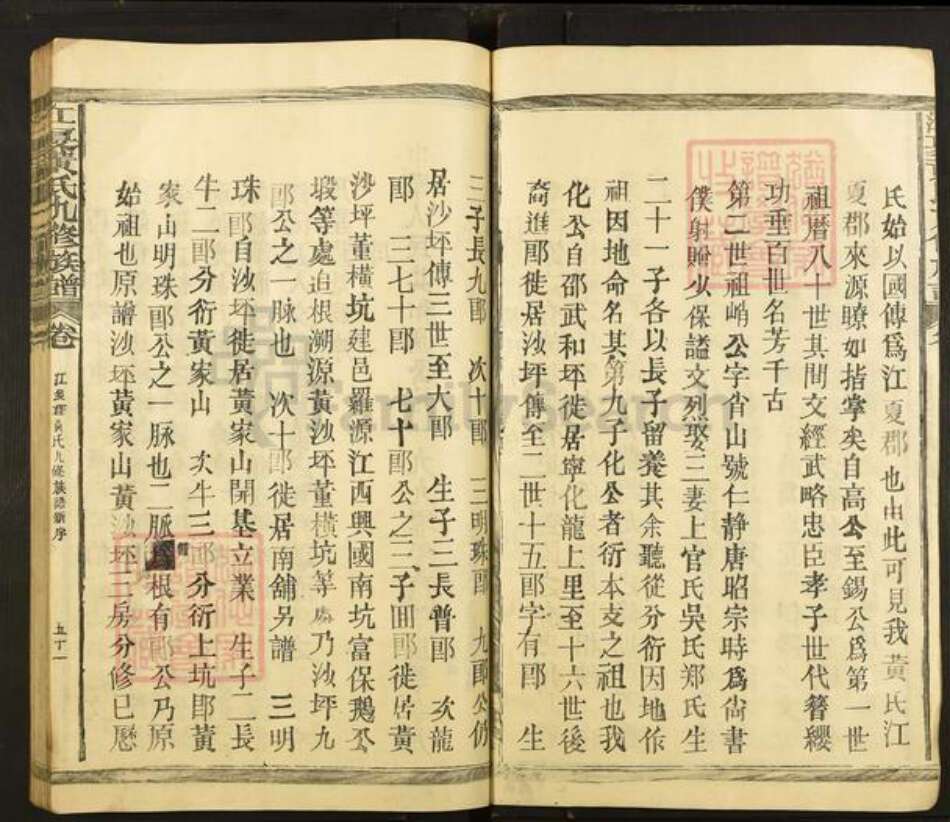 氏始以國傳為江夏郡也由此可見我黃氏江
夏郡來源瞭如指掌矣自高公至錫公為第一世
祖曆八十世其間文經武略忠臣孝子世代簪纓
功垂百世名芳千古
第二世祖峭公字肖山號仁靜唐昭宗時為尚書
僕射贈少保謚文烈娶三妻上官氏吳氏鄭氏生
二十一子各以長子留養其余聽從分衍因地作
祖因地命名其第九子化公者衍本支之祖也我
化公自邵武和坪徙居寧化龍上里至十六世後
裔進郎徙居沙坪傳至二世十五郎字有郎 生
三子長九郎 次十郎 三明珠郎 九郎公仍
居沙坪傳三世至大郎 生子三長普郎 次龍
郎 三七十郎 七十郎公之三子回郎徙居黃
沙坪董橫坑建邑羅源江西興國南坑富保鵝公
塅等處追根溯源黃沙坪董橫坑等處乃沙坪九
郎公之一脉也 次十郎徙居南舖另譜 三明
珠郎自沙坪徙居黃家山開基立業 生子二長
牛二郎分衍黃家山 次牛三郎分衍上坑郎黃
家山明珠郎公之一脉也二脈 根有郎公乃原
始祖也原譜沙坪黃家山黃沙坪三房分修已歷
江夏黃氏九修族譜
卷
五十一
FamilySearch